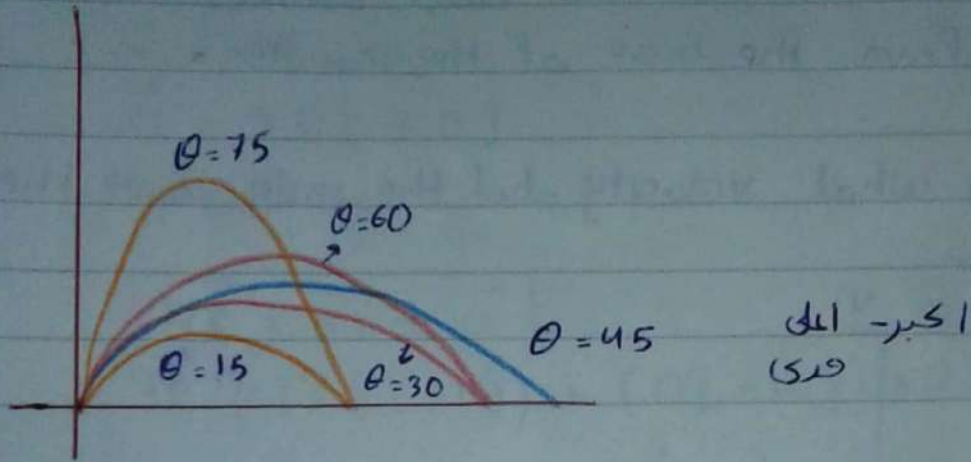 θ=75
θ=60
θ=45
θ=30
θ=15
اكبر - اعلى
مدى